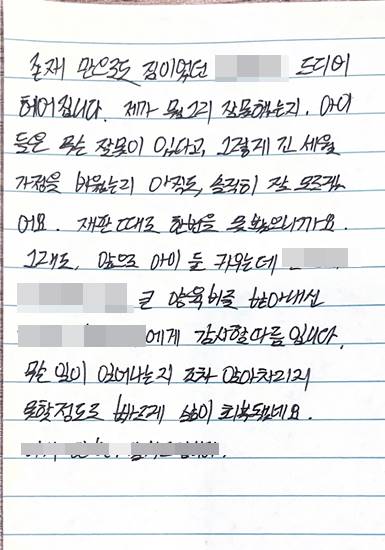 존재 만으로도 짐이었던 드디어
헤어집니다. 제가 뭘그리 잘못했는지. 아이
들은 무슨 잘못이 있다고, 그렇게 긴 세월
가정을 비웠는지 아직도, 솔직히 잘 모르겠
어요. 재판 때도 한번을 못봤으니까요.
그래도, 앞으로 아이 둘 키우는데
큰 양육비를 받아내신
에게 감사할따름입니다.
무슨 일이 일어나는지 조차 알아차리지
못할정도로 빠르게 삶이 회복되네요.